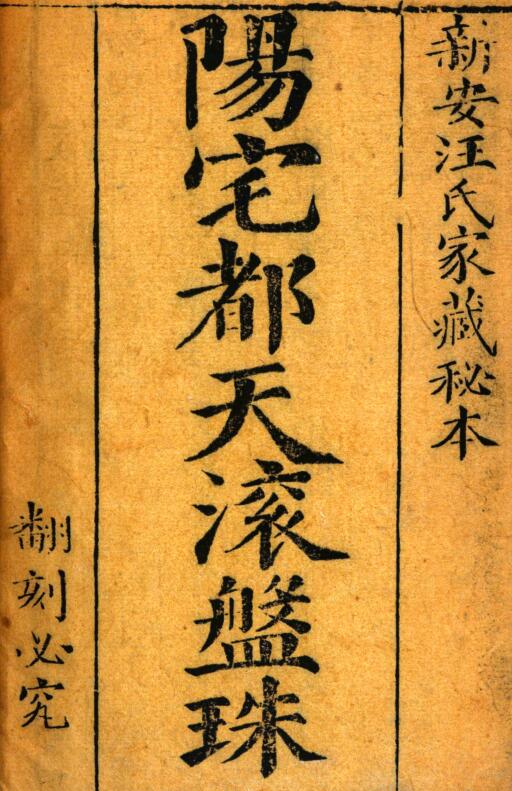 新安汪氏家藏秘本
陽宅都天滚盤珠
翻刻必究